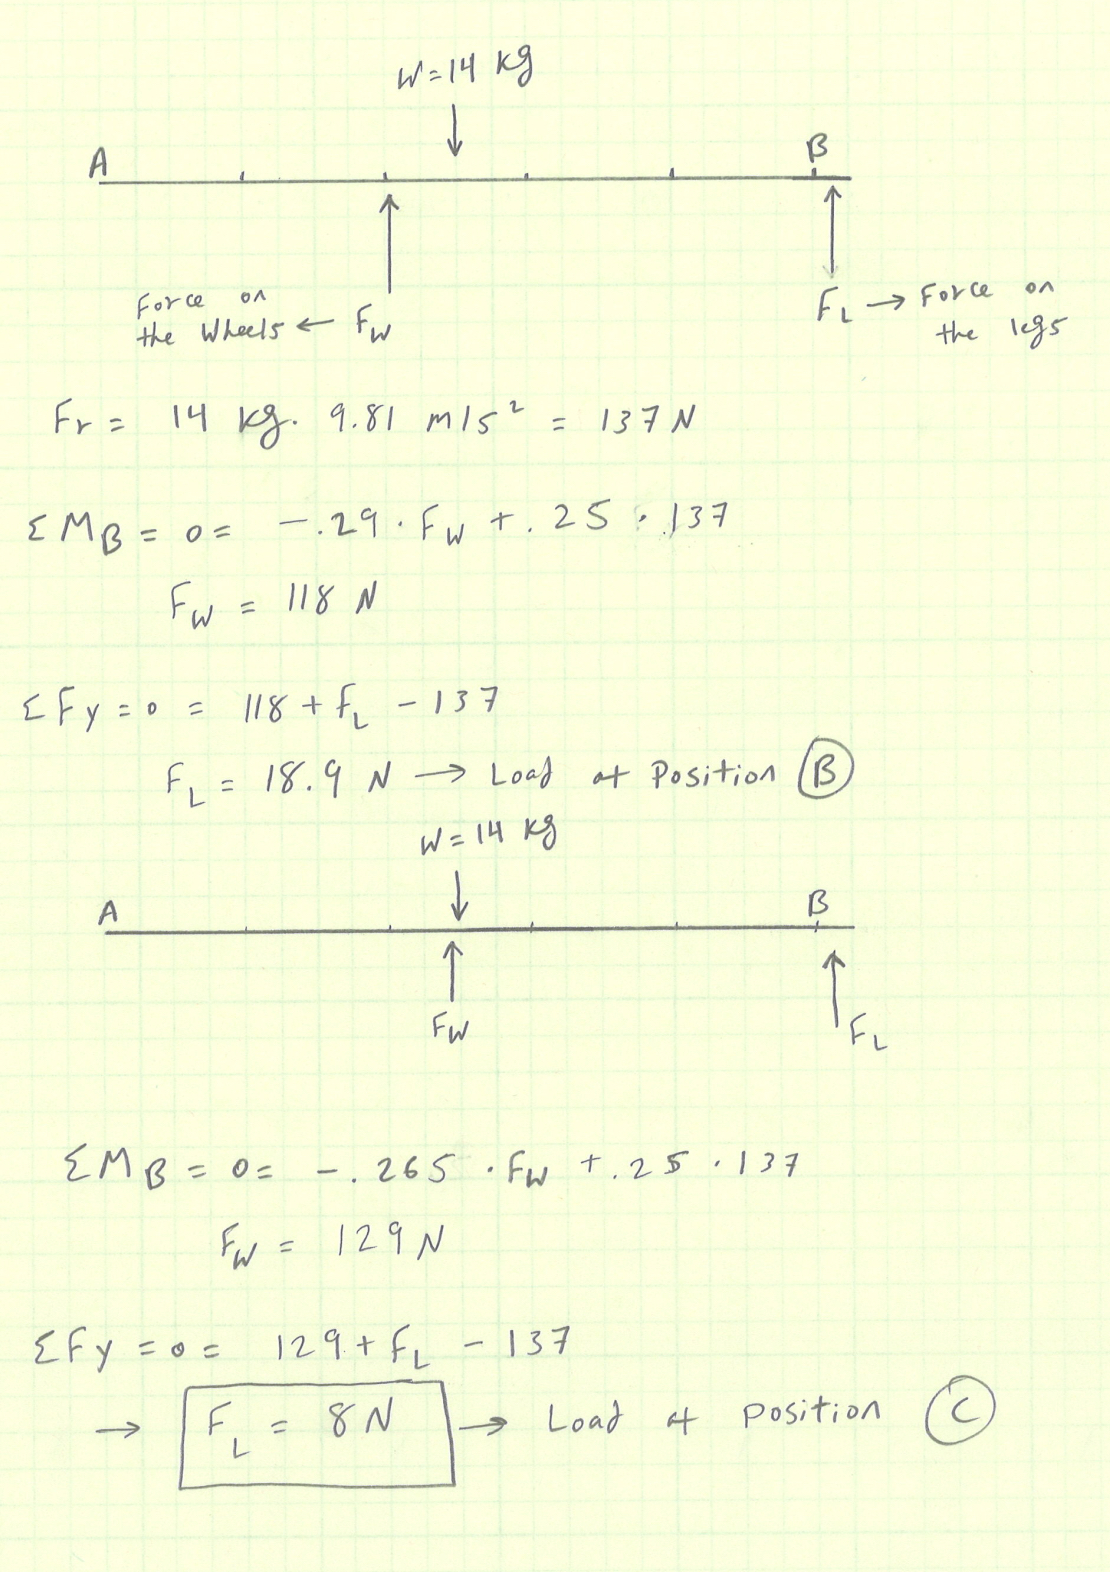 W=14 kg
A
B
Force on
the Wheels ← FW
FL → Force on
the legs
Fr = 14 kg. 9.81 m/s² = 137 N
ΣMB = 0 = -.29 · FW + .25 · 137
FW = 118 N
ΣFy = 0 = 118 + FL - 137
FL = 18.9 N → Load at Position B
W=14 kg
A
B
FW
FL
ΣMB = 0 = -.265 · FW + .25 · 137
FW = 129 N
ΣFy = 0 = 129 + FL - 137
→ FL = 8 N → Load at position C